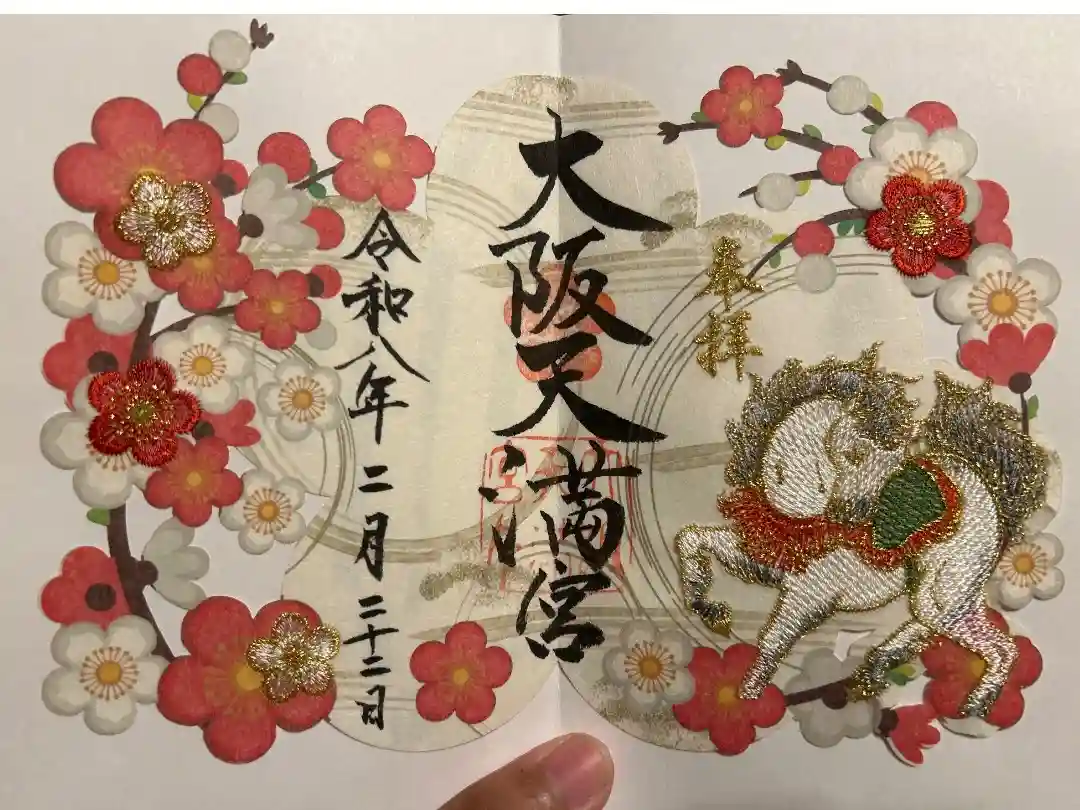 奉拝
大阪天満宮
令和八年二月二十二日